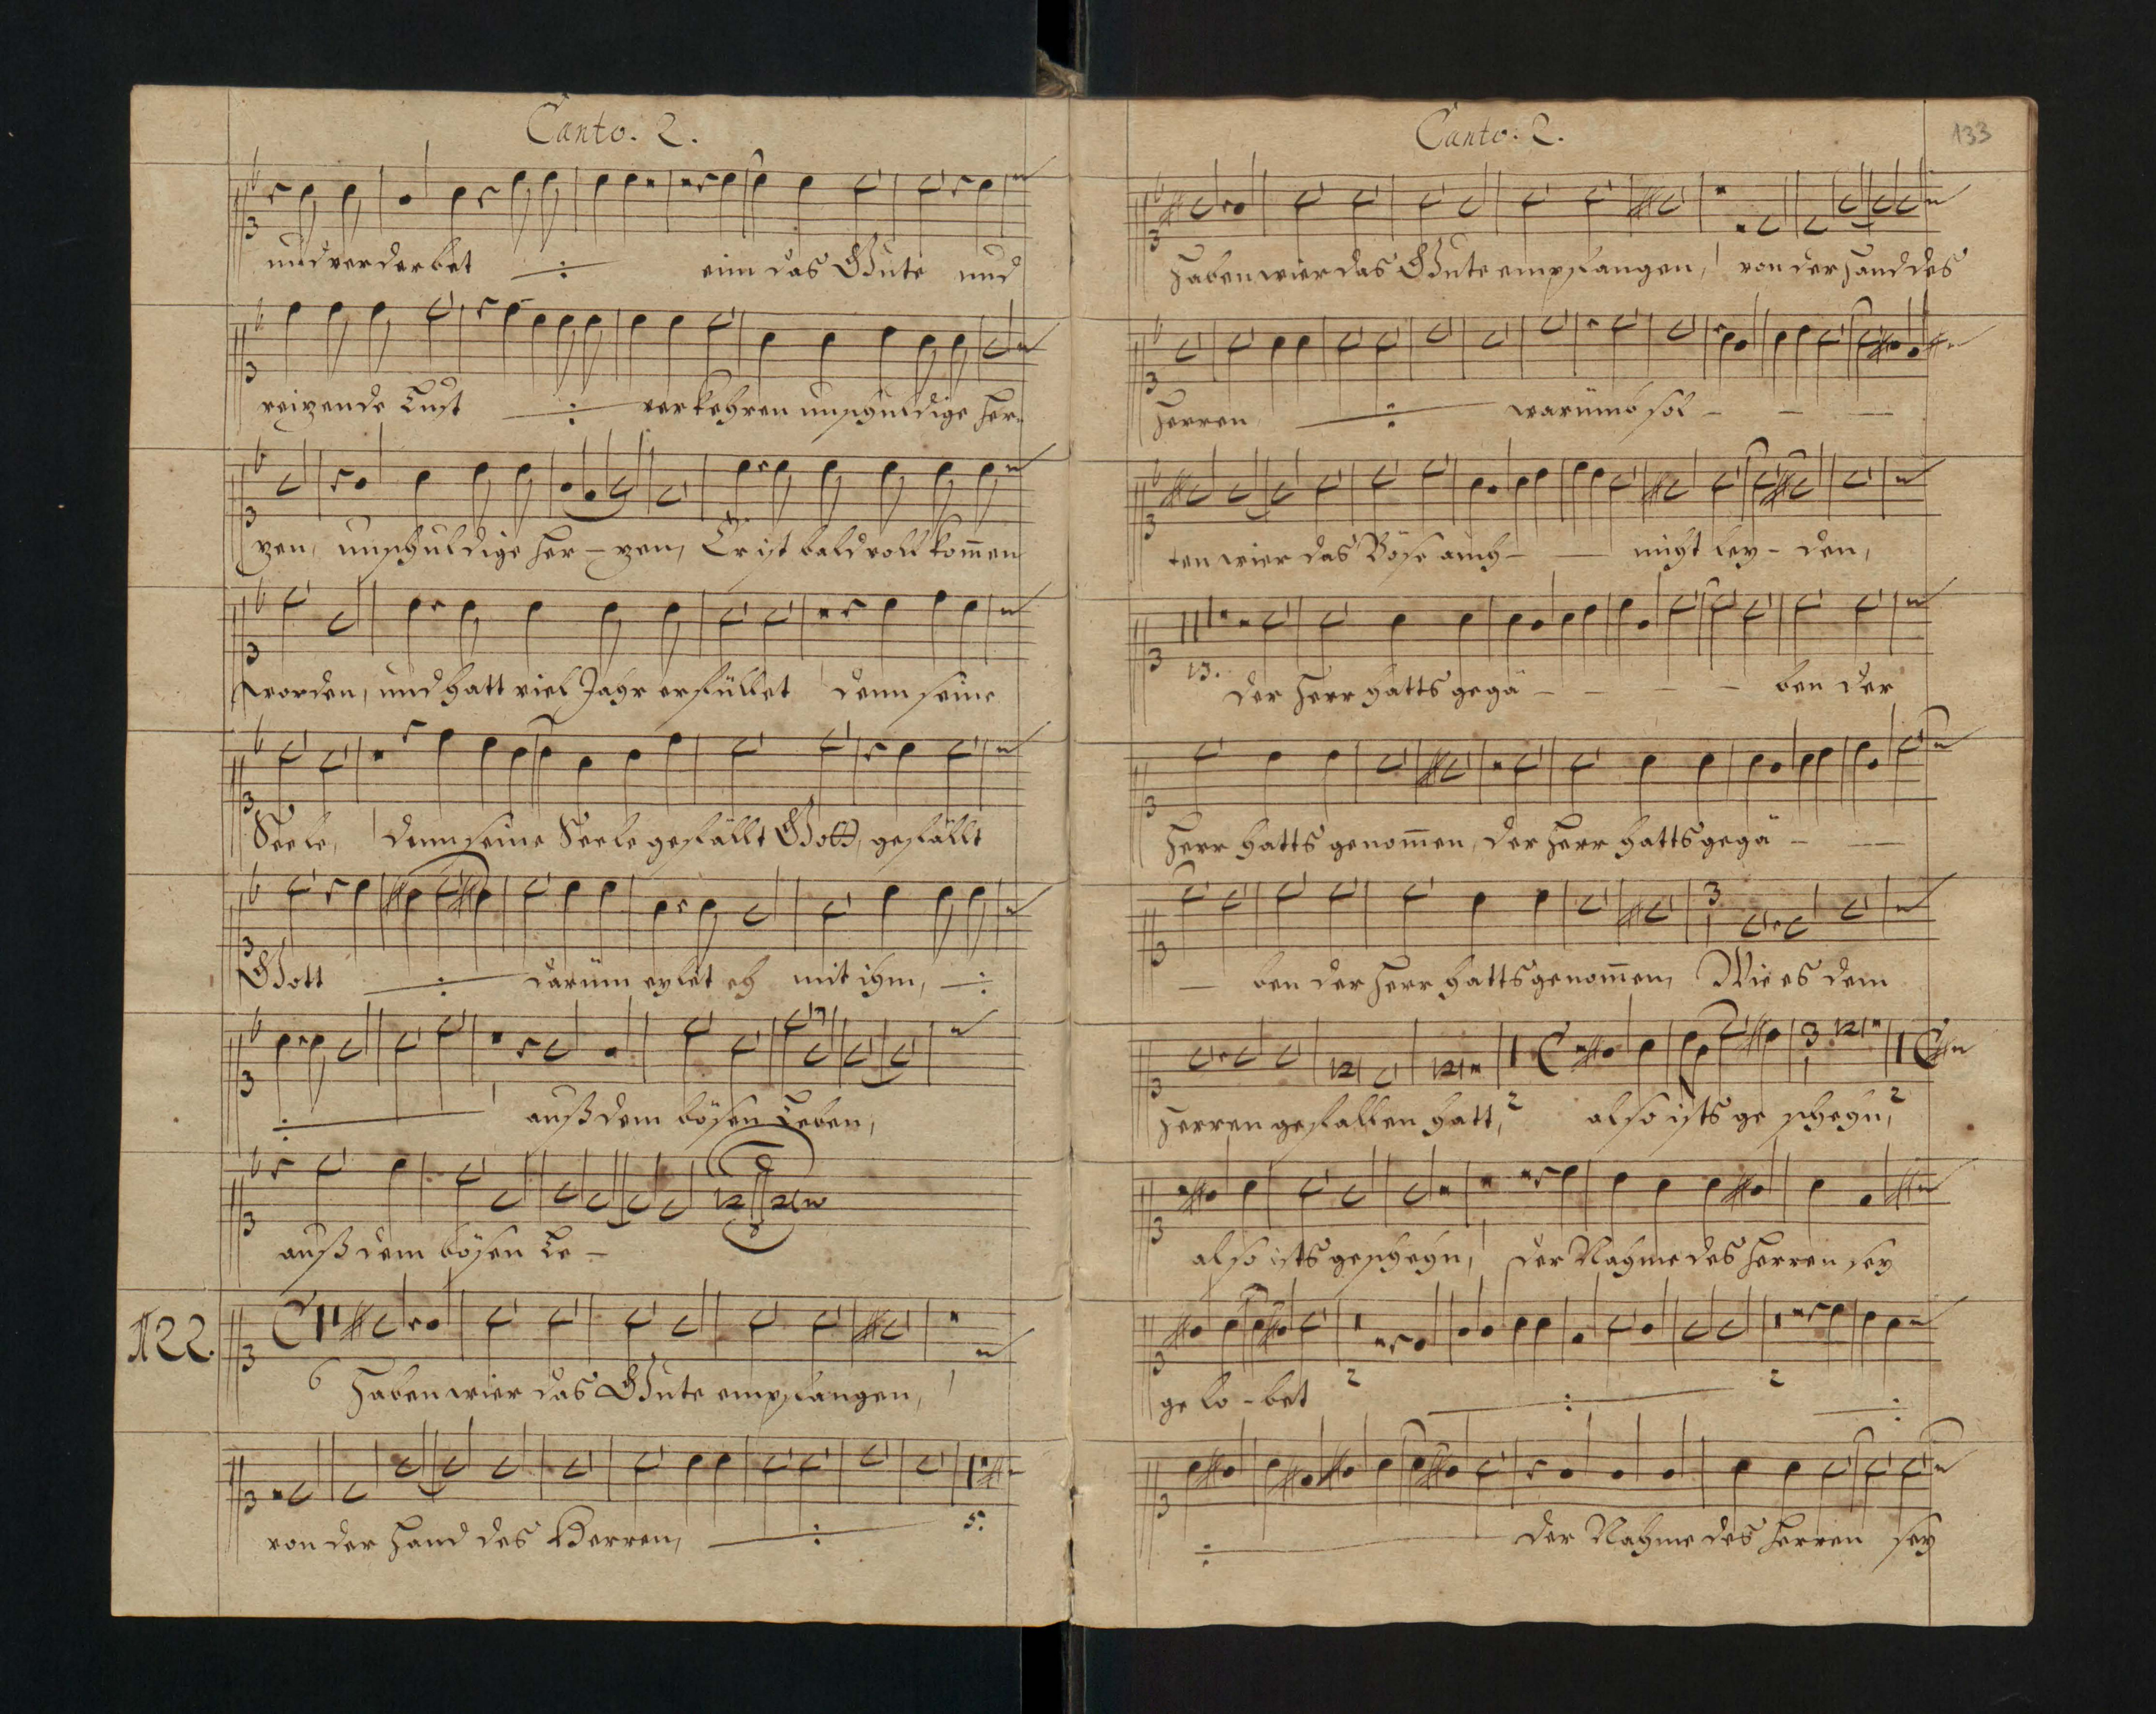 Canto. 2.
und verderbet eim das Gute und
reizende Lust verkehren unschuldige Her-
zen, unschuldige Her- zen, Er ist bald vollkom̄en
worden, und hatt viel Jahr erfüllet denn seine
Seele, denn seine Seele gefällt Gott, gefällt
Gott darüm eylet eh mit ihm,
auß dem bösen Leben,
auß dem bösen Le-
N22.
6
Haben wier das Gute empfangen,
von der Hand des Herren, 5.
Canto. 2.
133
Haben wier das Gute empfangen, von der Hand des
Herren warümb sol-
ten wier das Böse auch nicht ley- den,
13. der Herr hatts gegä- ben der
Herr hatts genom̄en, der Herr hatts gegä-
ben der Herr hatts genom̄en, Wie es dem
Herren gefallen hatt, 2 also ists ge schehn, 2
also ists geschehn, der Nahme des Herren sey
ge lo-bet 2 2
der Nahme des Herren sey